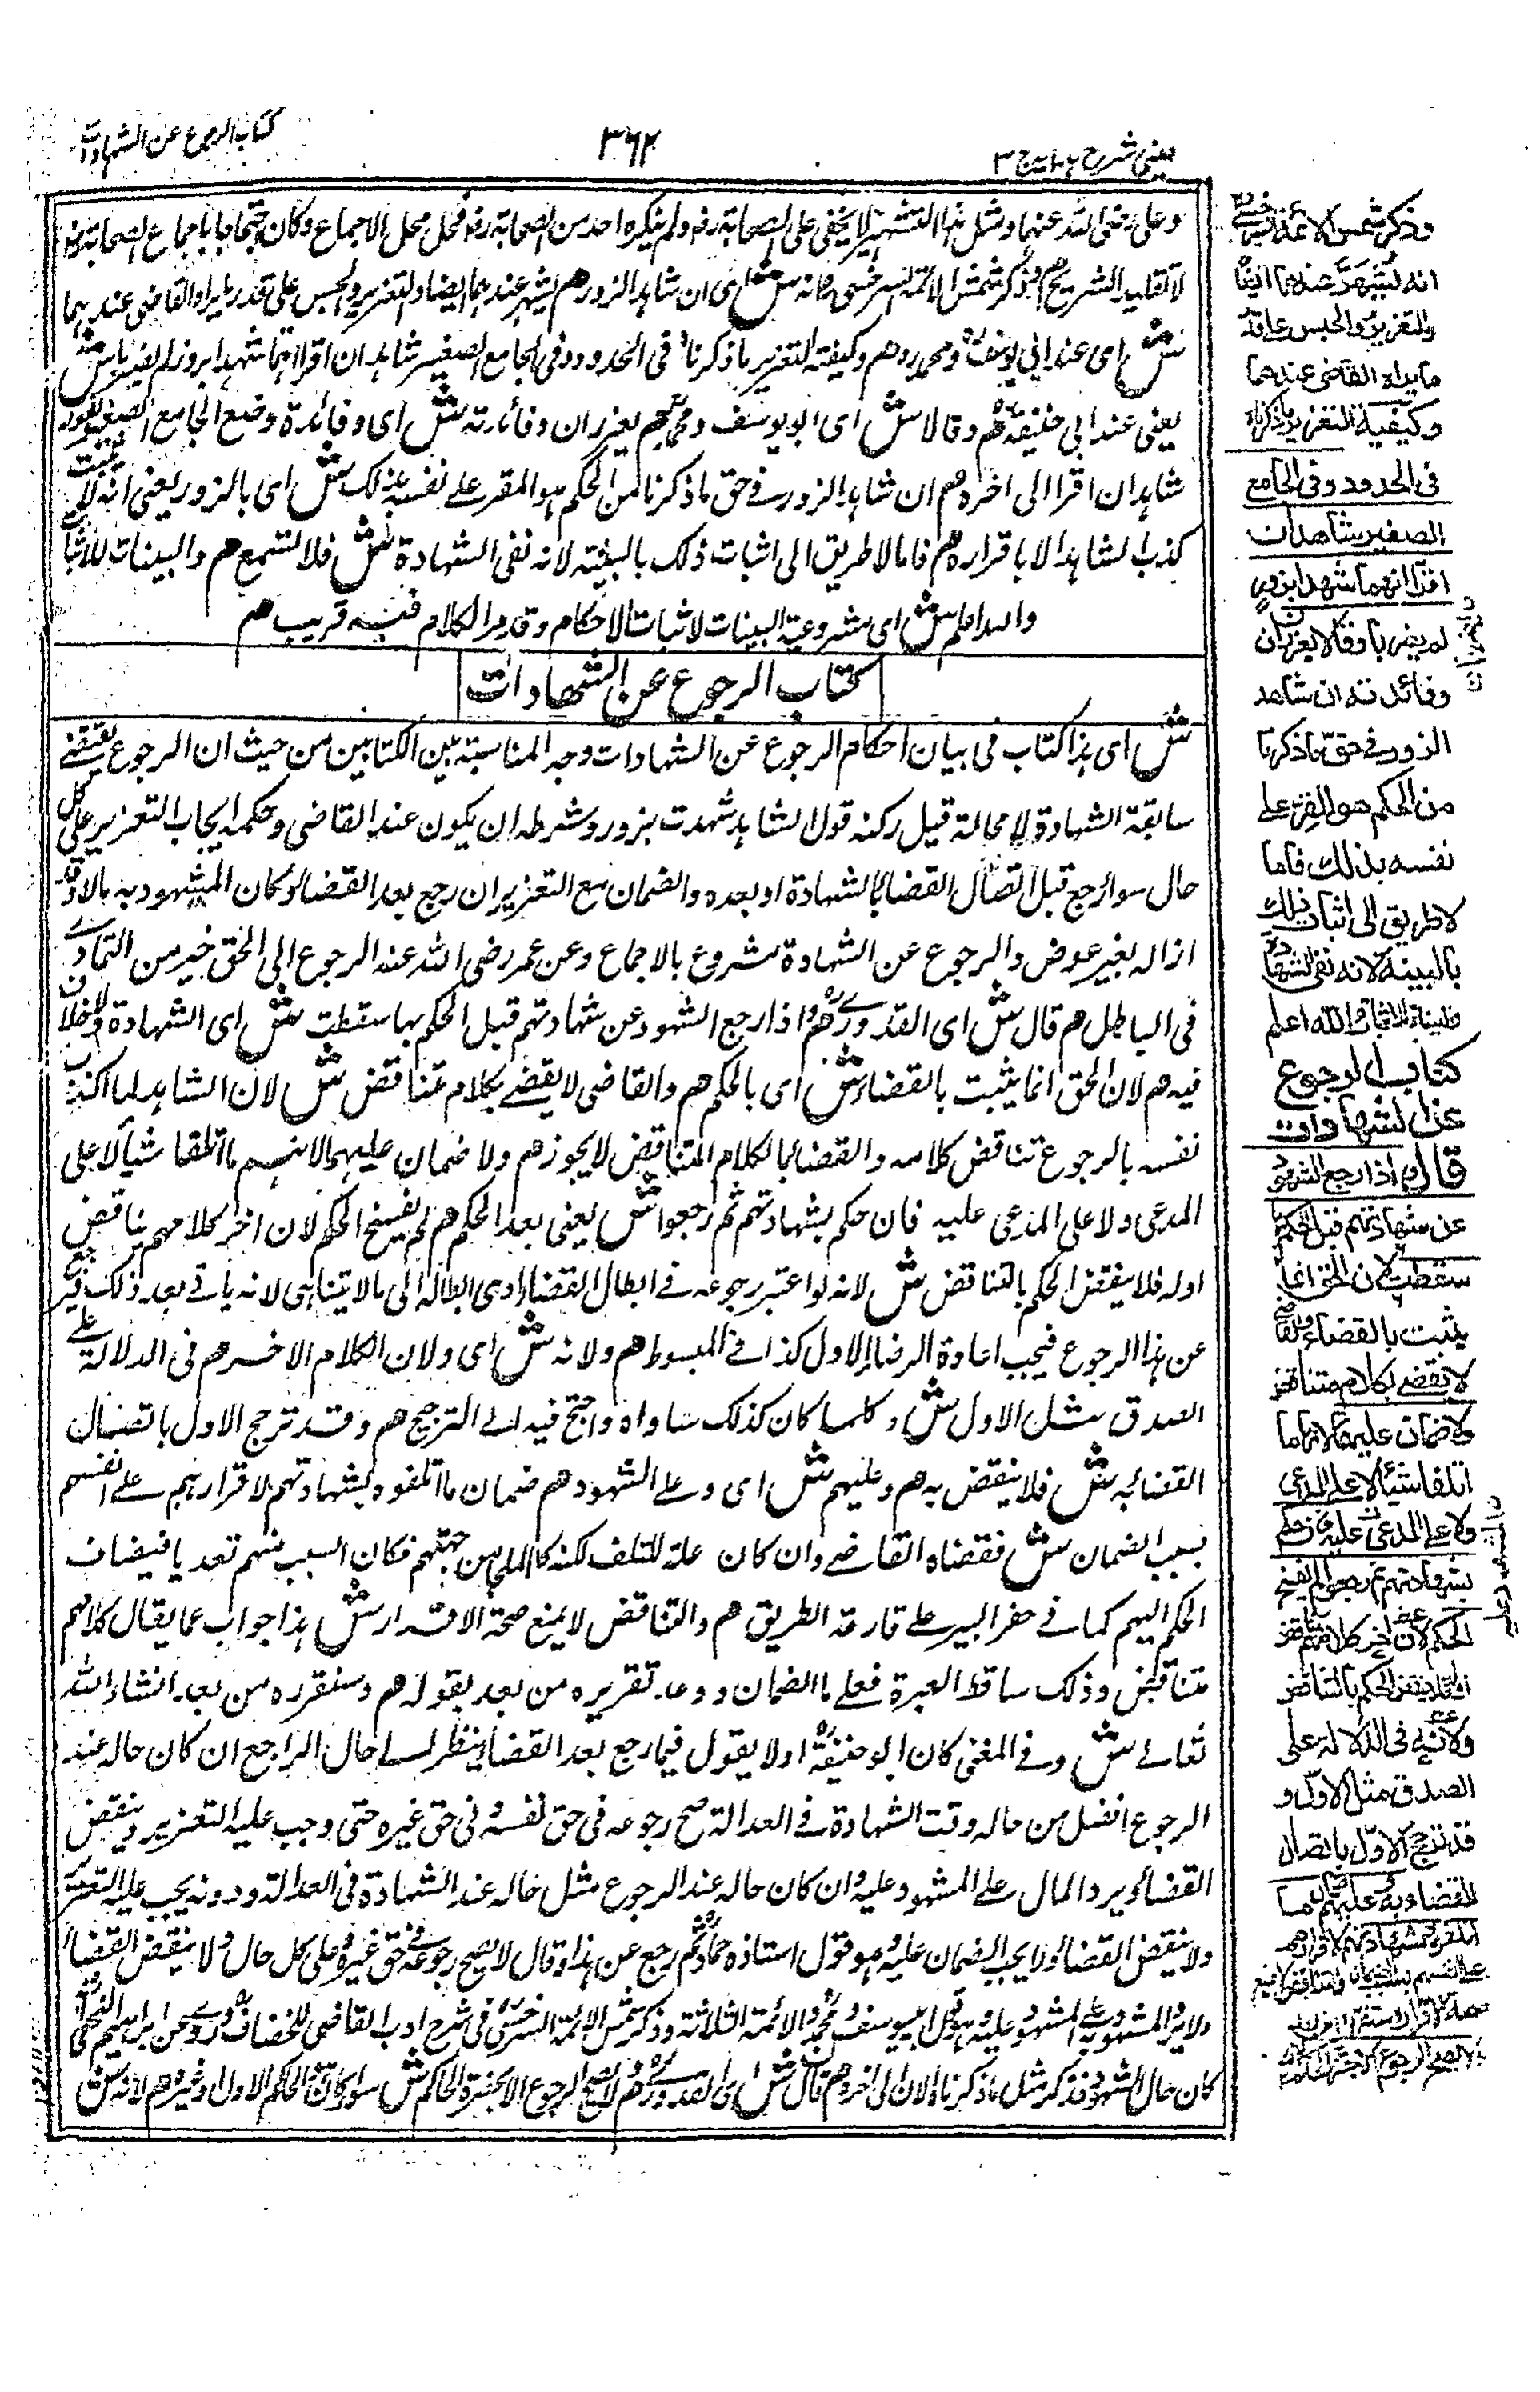 كتاب الرجوع عن الشهادات
٣٦٢
عينى شرح هدايه ج ٣
وعلى رضى الله عنهما ومثل هذا التشهير لا يخفى على الصحابة رض ولم ينكره احد من الصحابة رض فحل محل الاجماع وكان احتجاجا باجماع الصحابة رض
لا تقليد الشريح هم وذكر شمس الائمة السرخسى رح انه ش اى ان شاهد الزور هم يشهر عندهما ايضا والتعزير والحبس على قدر ما يراه القاضى عندهما
ش اى عند ابى يوسف ومحمد رح هم وكيفية التعزير ما ذكرناه فى الحدود وفى الجامع الصغير شاهدان اقرا انهما شهدا بزور لم يضربا ش
يعنى عند ابى حنيفة هم وقالا ش اى ابو يوسف ومحمد هم يعزران وفائدته ش اى وفائدة وضع الجامع الصغير بقوله
شاهدان اقرا الى اخره هم ان شاهد الزور فى حق ما ذكرنا من الحكم هو المقر على نفسه بذلك ش اى بالزور يعنى انه لا يثبت
كذب الشاهد الا باقراره هم فاما لا طريق الى اثبات ذلك بالبينة لانه نفى الشهادة ش فلا تسمع هم والبينات للاثبات
والله اعلم ش اى مشروعية البينات لاثبات الاحكام وقد مر الكلام فيه قريب هم
كتاب الرجوع عن الشهادات
ش اى هذا كتاب فى بيان احكام الرجوع عن الشهادات وجه المناسبة بين الكتابين من حيث ان الرجوع يقتضى
سابقة الشهادة لا محالة قيل ركنه قول الشاهد شهدت بزور وشرطه ان يكون عند القاضى وحكمه ايجاب التعزير على كل
حال سواء رجع قبل اتصال القضاء بالشهادة او بعده والضمان مع التعزير ان رجع بعد القضاء وكان المشهود به مالا وقد
ازاله بغير عوض والرجوع عن الشهادة مشروع بالاجماع وعن عمر رضى الله عنه الرجوع الى الحق خير من التمادى
فى الباطل هم قال ش اى القدورى رح هم اذا رجع الشهود عن شهادتهم قبل الحكم بها سقطت ش اى الشهادة ولا خلاف
فيه هم لان الحق انما يثبت بالقضاء ش اى بالحكم هم والقاضى لا يقضى بكلام متناقض ش لان الشاهد لما اكذب
نفسه بالرجوع تناقض كلامه والقضاء بالكلام المتناقض لا يجوز هم ولا ضمان عليهما لانهما ما اتلفا شيأ لا على
المدعى ولا على المدعى عليه فان حكم بشهادتهم ثم رجعوا ش يعنى بعد الحكم هم لم يفسخ الحكم لان اخر كلامهم يناقض
اوله فلا ينقض الحكم بالتناقض ش لانه لو اعتبر رجوعه فى ابطال القضاء ادى ابطاله الى ما لا يتناهى لانه ياتى بعد ذلك فيرجع
عن هذا الرجوع فيجب اعادة القضاء الاول كذا فى المبسوط هم ولانه ش اى ولان الكلام الاخر هم فى الدلالة على
الصدق مثل الاول ش وكلما كان كذلك ساواه واحتج فيه الى الترجيح هم وقد ترجح الاول باتصال
القضاء به ش فلا ينقض به هم وعليهم ش اى وعلى الشهود هم ضمان ما اتلفوه بشهادتهم لاقرارهم على انفسهم
بسبب الضمان ش فقضاء القاضى وان كان علة للتلف لكنه كالملجى من جهتهم فكان السبب منهم تعديا فيضاف
الحكم اليهم كما فى حفر البير على قارعة الطريق هم والتناقض لا يمنع صحة الاقرار ش هذا جواب عما يقال كلامهم
متناقض وذلك ساقط العبرة فعلى ما الضمان ووعد تقريره من بعد بقوله هم وسنقرره من بعد انشاء الله
تعالى ش وفى المغنى كان ابو حنيفة اولا يقول فيما رجع بعد القضاء ينظر الى حال الراجع ان كان حاله عند
الرجوع افضل من حاله وقت الشهادة فى العدالة صح رجوعه فى حق نفسه وفى حق غيره حتى وجب عليه التعزير وينقض
القضاء ويرد المال على المشهود عليه وان كان حاله عند الرجوع مثل حاله عند الشهادة فى العدالة ودونه يجب عليه التعزير
ولا ينقض القضاء ولا يجب الضمان عليه وهو قول استاذه حماد ثم رجع عن هذا وقال لا يصح رجوعه فى حق غيره على كل حال ولا ينقض القضاء
ولا يرد المشهود به على المشهود عليه وهو قول ابى يوسف ومحمد والائمة الثلاثة وذكر شمس الائمة السرخسى فى شرح ادب القاضى للخصاف وروى عن ابراهيم النخعى
كان حال الشهود فذكر مثل ما ذكرنا الان الى اخره هم قال ش اى القدورى هم لا يصح الرجوع الا بحضرة الحاكم ش سواء كان الحاكم الاول او غيره هم لانه ش
وذكر شمس الائمة السرخسى
انه يشهر عندهما ايضا
والتعزير والحبس على قدر
ما يراه القاضى عندهما
وكيفية التعزير ما ذكرناه
فى الحدود وفى الجامع
الصغير شاهدان
اقرا انهما شهدا بزور
لم يضربا وقالا يعزران
وفائدته ان شاهد
الزور فى حق ما ذكرنا
من الحكم هو المقر على
نفسه بذلك فاما
لا طريق الى اثبات ذلك
بالبينة لانه نفى الشهادة
والبينات للاثبات والله اعلم
كتاب الرجوع
عن الشهادات
قال اذا رجع الشهود
عن شهادتهم قبل الحكم بها
سقطت لان الحق انما
يثبت بالقضاء والقاضى
لا يقضى بكلام متناقض
ولا ضمان عليهما لانهما ما
اتلفا شيئا لا على المدعى
ولا على المدعى عليه فان حكم
بشهادتهم ثم رجعوا لم يفسخ
الحكم لان اخر كلامهم يناقض
اوله فلا ينقض الحكم بالتناقض
ولانه فى الدلالة على
الصدق مثل الاول و
قد ترجح الاول باتصال
القضاء به وعليهم ضمان ما
اتلفوه بشهادتهم لاقرارهم
على انفسهم بسبب الضمان والتناقض لا يمنع
صحة الاقرار وسنقرره من بعد
ولا يصح الرجوع الا بحضرة الحاكم لانه